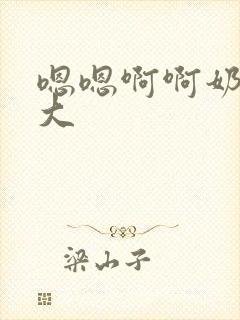 嗯嗯啊啊奶
大
梁山子